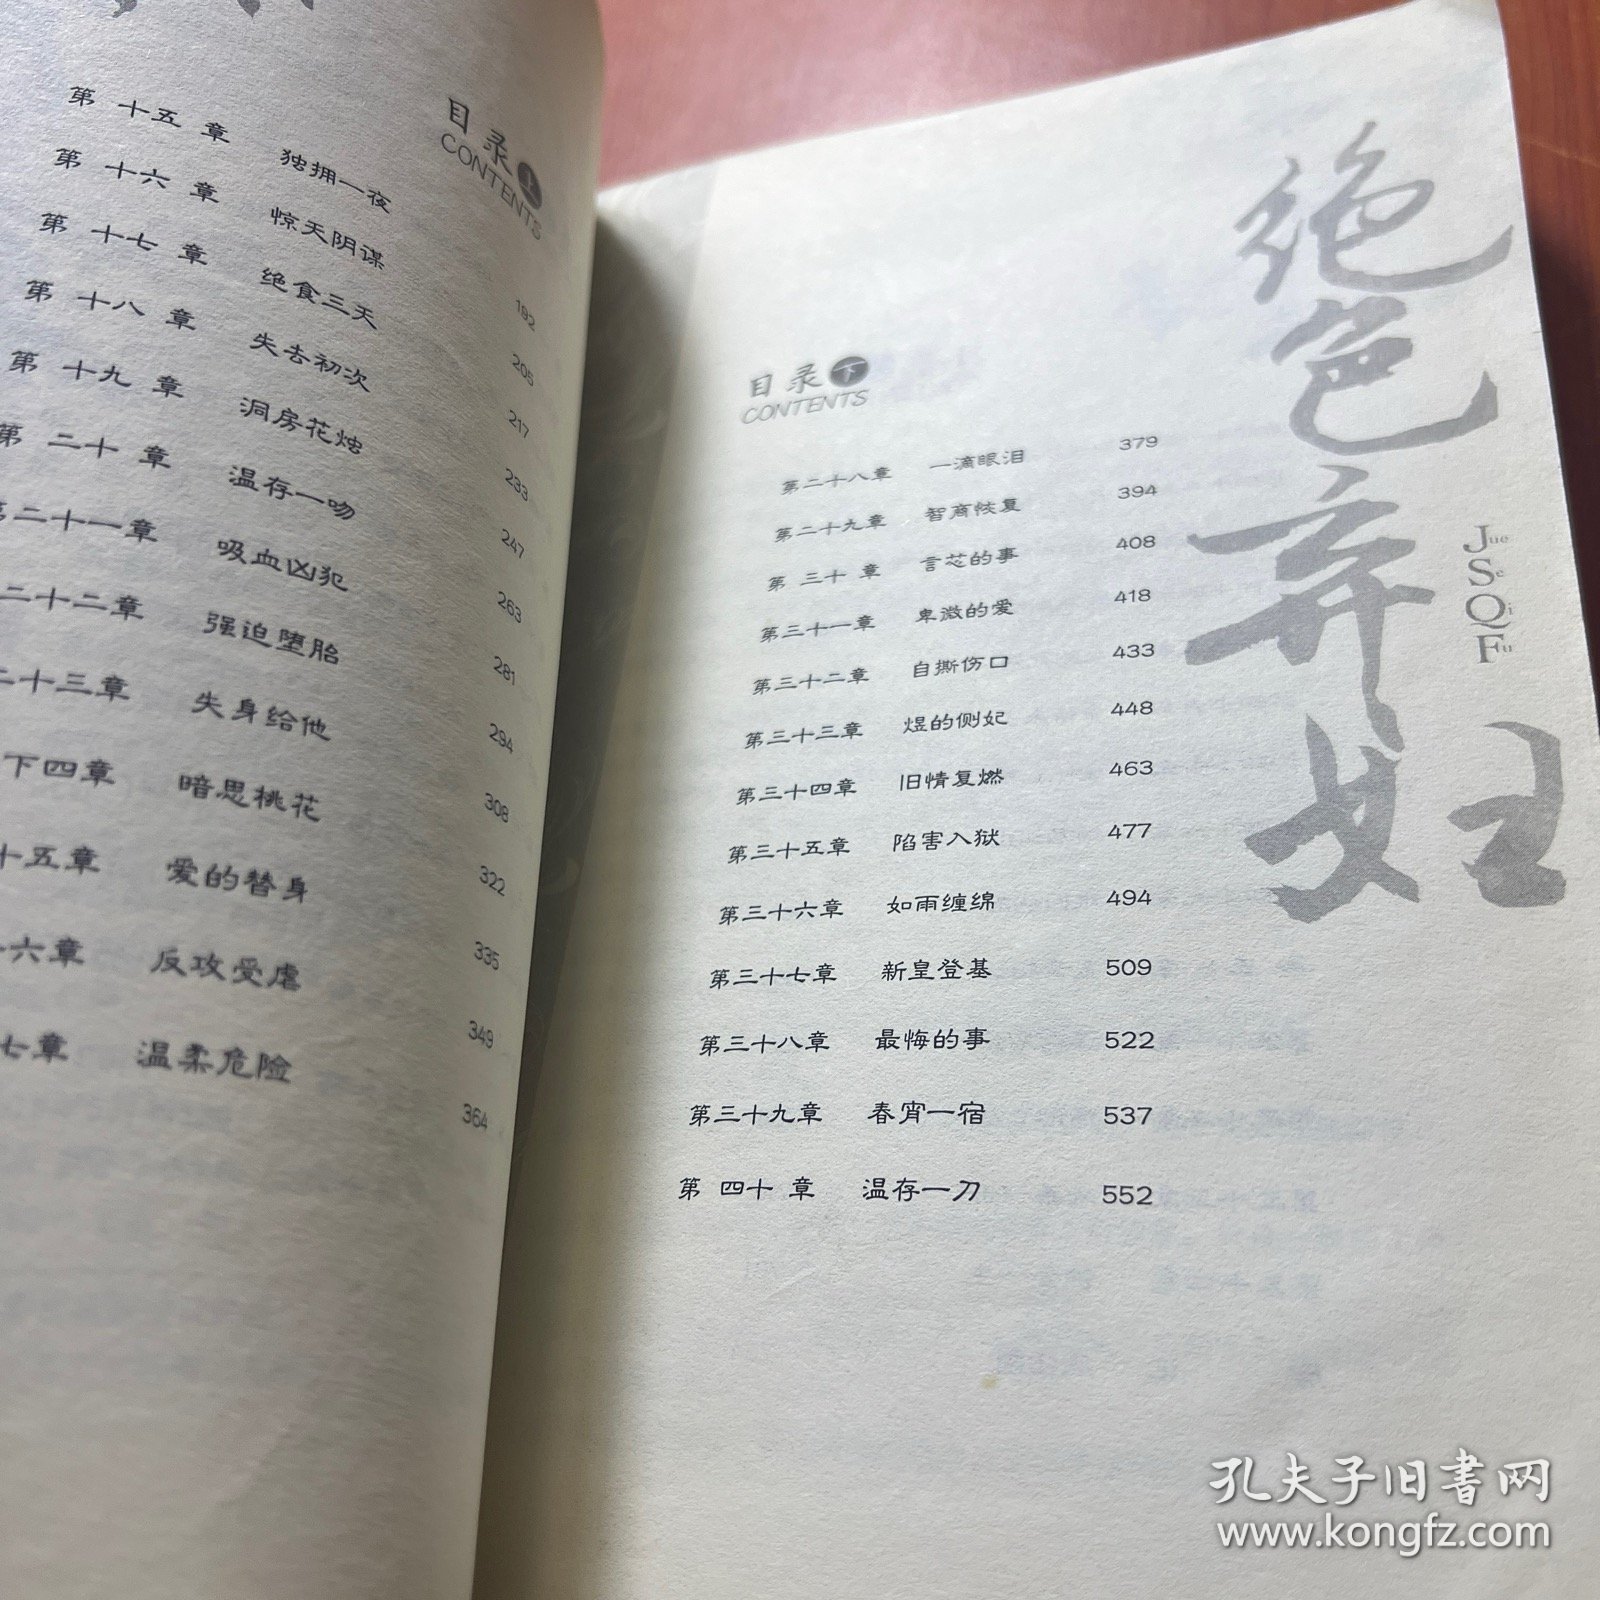 目录上
CONTENTS
第 十五 章 独拥一夜 192
第 十六 章 惊天阴谋 205
第 十七 章 绝食三天 217
第 十八 章 失去初次 233
第 十九 章 洞房花烛 247
第 二十 章 温存一吻 263
第二十一章 吸血凶犯 281
二十二章 强迫堕胎 294
二十三章 失身给他 308
十四章 暗思桃花 322
十五章 爱的替身 335
六章 反攻受虐 349
七章 温柔危险 364
目录下
CONTENTS
第二十八章 一滴眼泪 379
第二十九章 智商恢复 394
第 三十 章 言芯的事 408
第三十一章 卑微的爱 418
第三十二章 自撕伤口 433
第三十三章 煜的侧妃 448
第三十四章 旧情复燃 463
第三十五章 陷害入狱 477
第三十六章 如雨缠绵 494
第三十七章 新皇登基 509
第三十八章 最悔的事 522
第三十九章 春宵一宿 537
第 四十 章 温存一刀 552
绝色弃妇
Jue
Se
Qi
Fu
孔夫子旧书网
www.kongfz.com